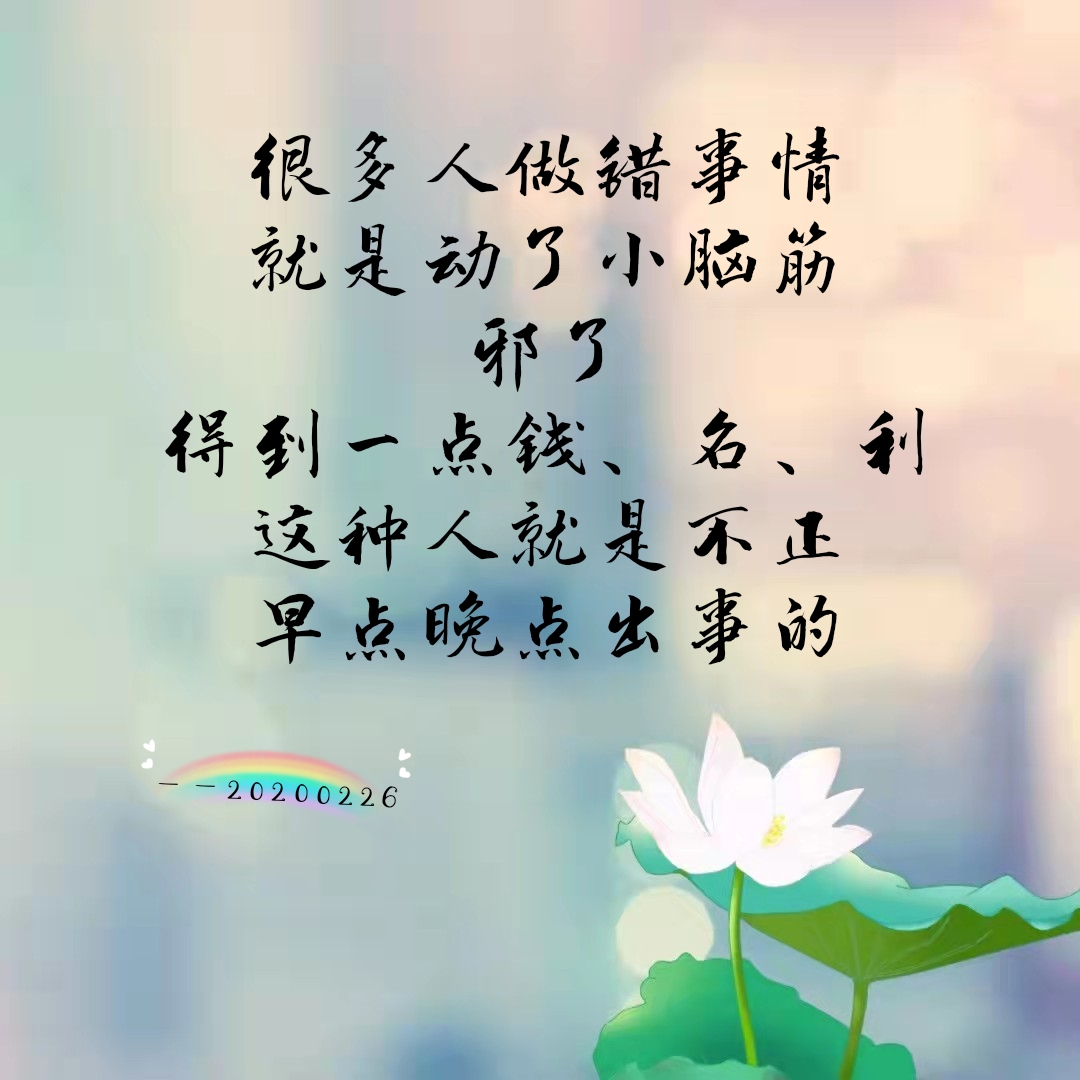 很多人做错事情
就是动了小脑筋
邪了
得到一点钱、名、利
这种人就是不正
早点晚点出事的
——20200226